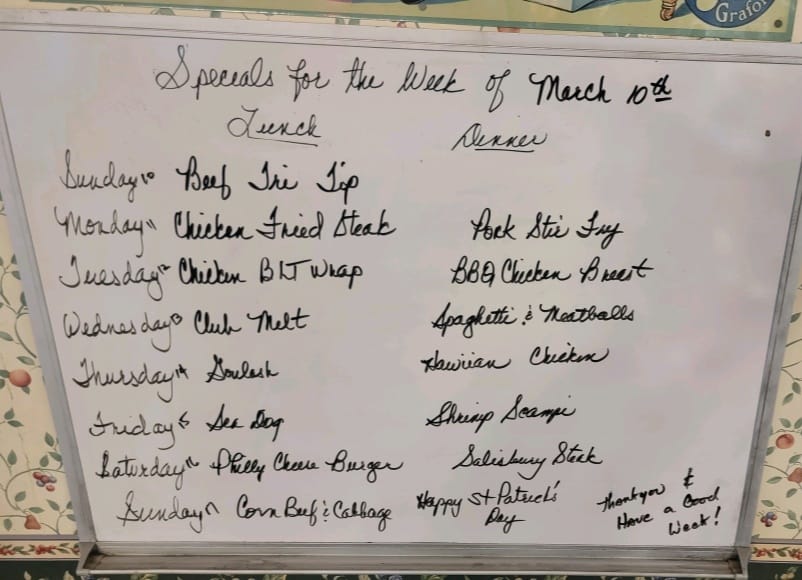 Grafo
Specials for the Week of March 10th
Lunch Dinner
Sunday 10 Beef Tri Tip
Monday 11 Chicken Fried Steak Pork Stir Fry
Tuesday 12 Chicken BLT Wrap BBQ Chicken Breast
Wednesday 13 Club Melt Spaghetti & Meatballs
Thursday 14 Goulash Hawiian Chicken
Friday 15 Sea Dog Shrimp Scampi
Saturday 16 Philly Cheese Burger Salisbury Steak
Sunday 17 Corn Beef & Cabbage Happy St Patrick's
Day
Thank you &
Have a Good
Week!